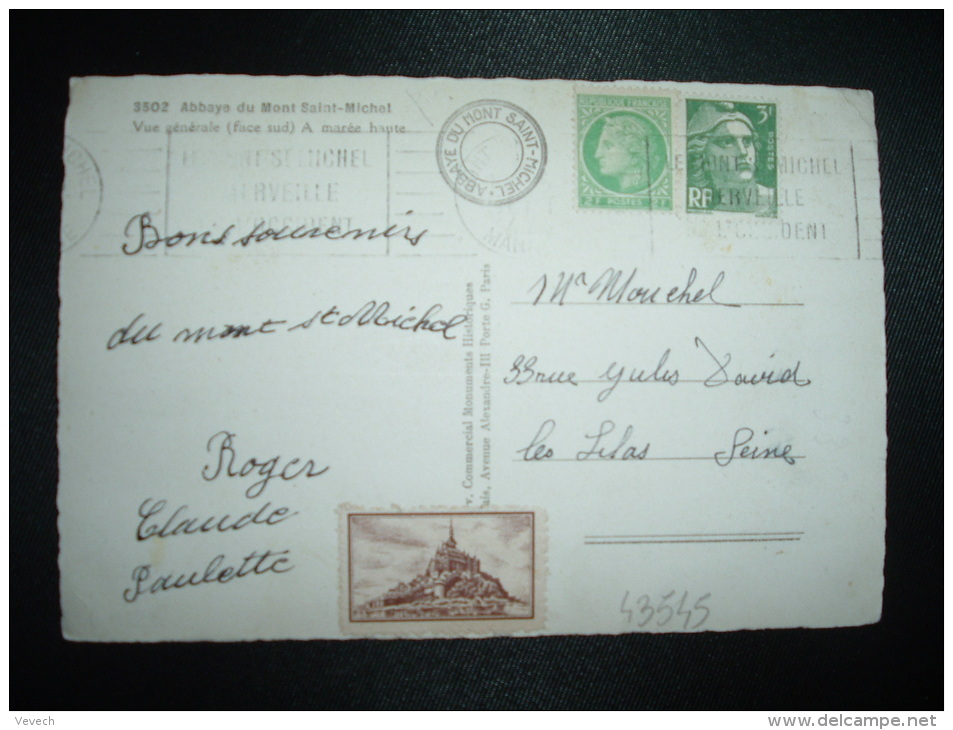 3502 Abbaye du Mont Saint-Michel
Vue générale (face sud) A marée haute
ABBAYE DU MONT SAINT-MICHEL
REPUBLIQUE FRANÇAISE
2F POSTES 2F
3F
POSTES
RF
LE MONT ST MICHEL
MERVEILLE
DE L'OCCIDENT
LE MONT ST MICHEL
MERVEILLE
DE L'OCCIDENT
Bons souvenirs
du mont st Michel
Roger
Claude
Paulette
Mr Mouchel
33 rue Jules David
les Lilas Seine
v. Commercial Monuments Historiques
lais, Avenue Alexandre-III Porte G. Paris
43545
Vevech
www.delcampe.net